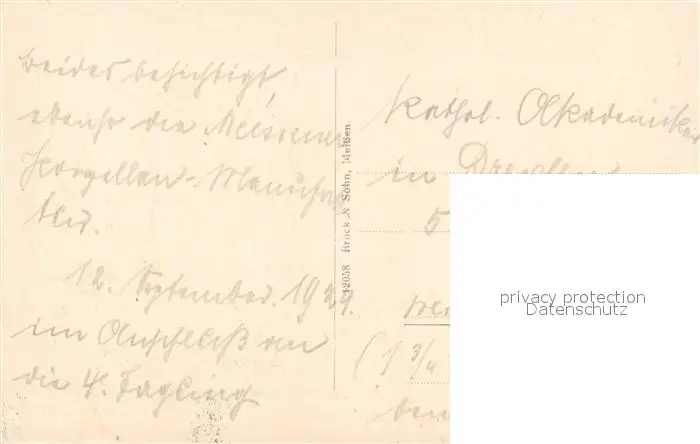 beides besichtigt,
ebenso die Meissner
Porzellan-Manufak
tur.
12. September 1929.
im Anschluß an
die 4. Tagung
Brück & Sohn, Meißen.
12058
Kathol. Akademiker
in Dresden
5
(1 3/4
privacy protection
Datenschutz